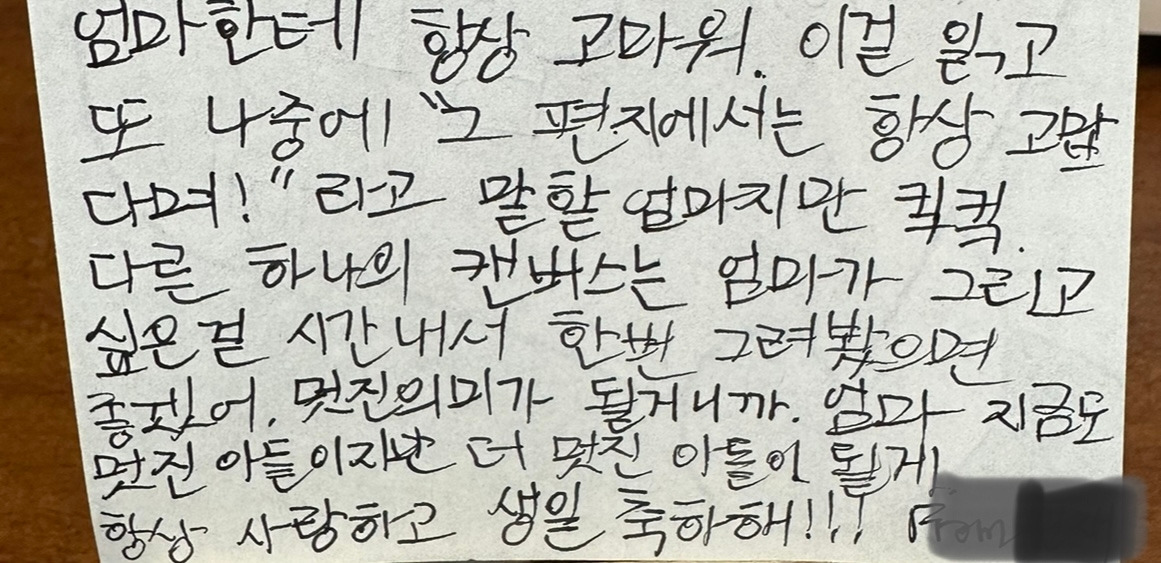 엄마한테 항상 고마워. 이걸 읽고
또 나중에 "그 편지에서는 항상 고맙
다며!" 라고 말할 엄마지만 킥킥.
다른 하나의 캔버스는 엄마가 그리고
싶은걸 시간내서 한번 그려봤으면
좋겠어. 멋진의미가 될거니까. 엄마 지금도
멋진 아들이지만 더 멋진 아들이 될게
항상 사랑하고 생일 축하해!!! From